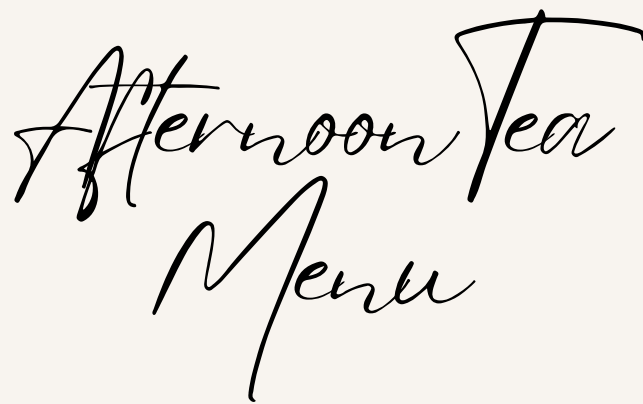 Afternoon Tea
Menu